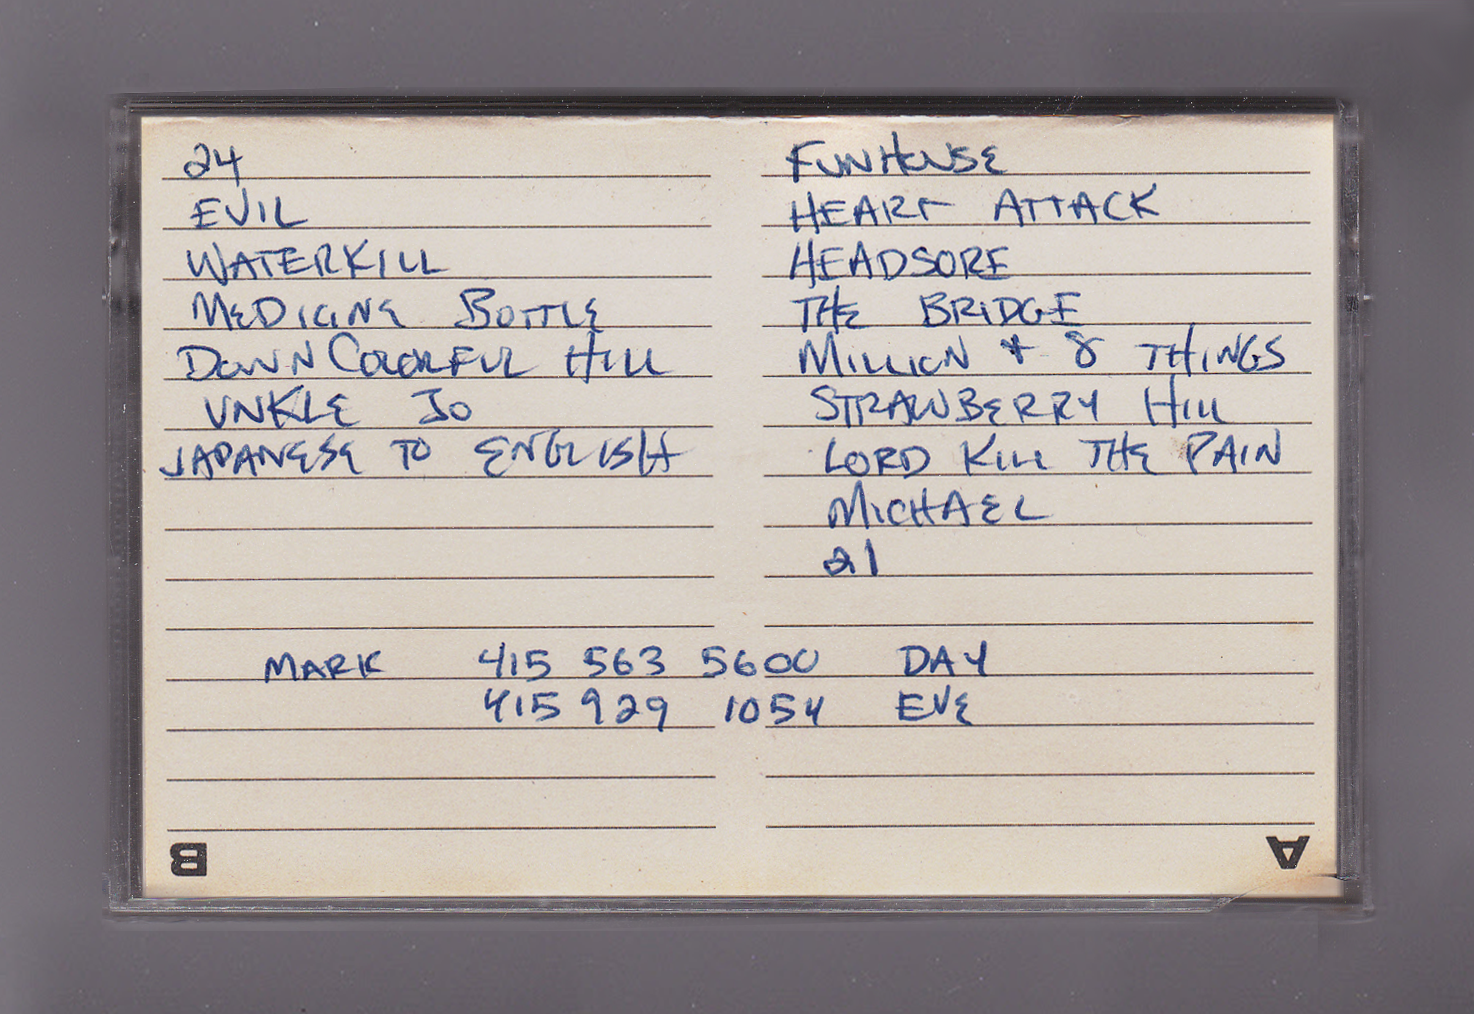 24
EVIL
WATERKILL
MEDICINE BOTTLE
DOWN COLORFUL HILL
UNKLE JO
JAPANESE TO ENGLISH
FUNHOUSE
HEART ATTACK
HEADSORE
THE BRIDGE
MILLION + 8 THINGS
STRAWBERRY HILL
LORD KILL THE PAIN
MICHAEL
21
MARK 415 563 5600 DAY
415 929 1054 EVE
B
A